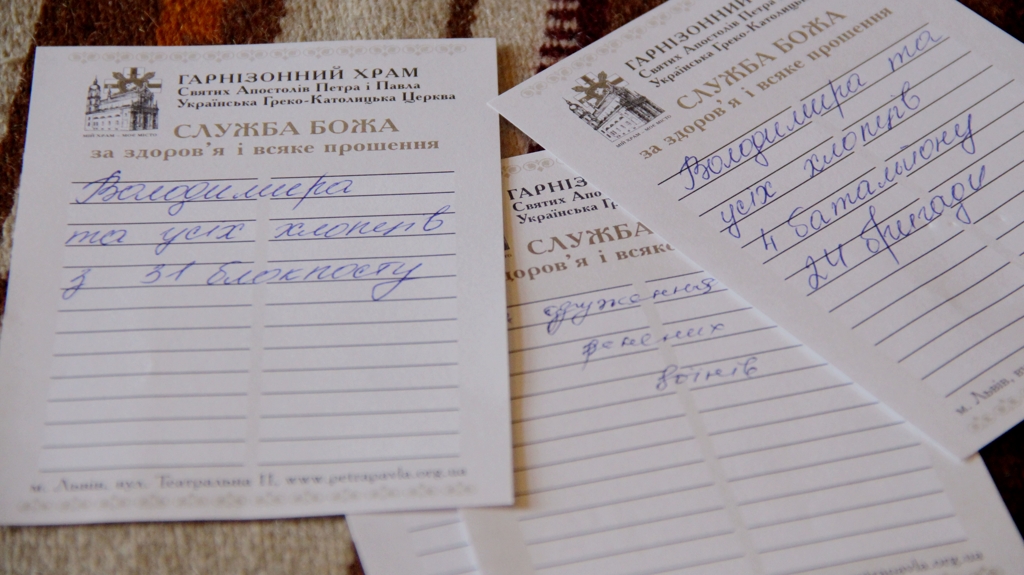 ГАРНІЗОННИЙ ХРАМ
Святих Апостолів Петра і Павла
Українська Греко-Католицька Церква
СЛУЖБА БОЖА
за здоров'я і всяке прошення
Володимира
та усіх хлопців
з 31 блокпосту
м. Львів, вул. Театральна 11, www.petrapavla.org.ua
ГАРНІЗ
Святих Апост
Українська Гре
СЛУЖБА
здоров'я і всяке
здруження
ранених
воїнів
ГАРНІЗОННИЙ
Святих Апостолів Петра
Українська Греко-Католицьк
СЛУЖБА БОЖА
за здоров'я і всяке прошення
Володимира та
усіх хлопців
4 батальйону
24 бригади
м. Львів, ву